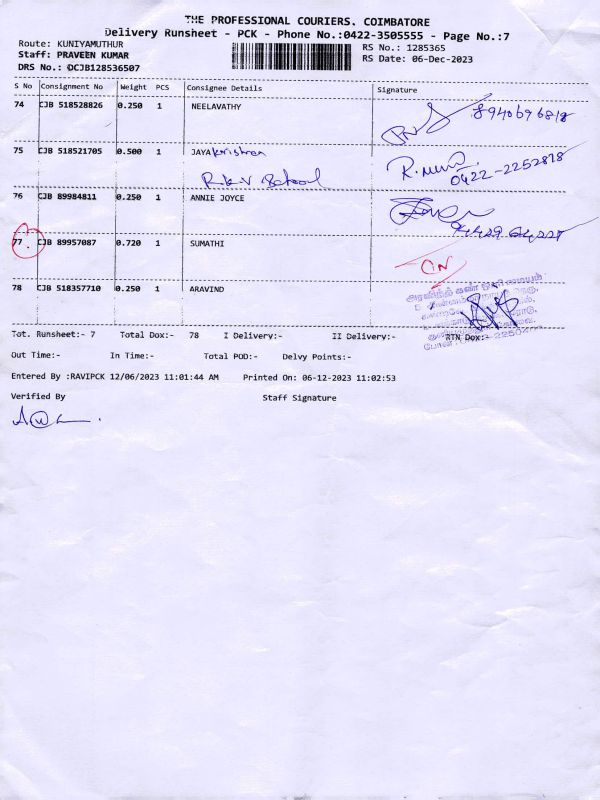 THE PROFESSIONAL COURIERS. COIMBATORE
Delivery Runsheet - PCK - Phone No.:0422-3505555 - Page No.:7
Route: KUNIYAMUTHUR
RS No.: 1285365
Staff: PRAVEEN KUMAR
RS Date: 06-Dec-2023
DRS No.: DCJB128536507
S No Consignment No Weight PCS Consignee Details Signature
74 CJB 518528826 0.250 1 NEELAVATHY 8940696818
75 CJB 518521705 0.500 1 JAYA Krishnan
R.K.V School 0422-2252878
76 CJB 89984811 0.250 1 ANNIE JOYCE
77 CJB 89957087 0.720 1 SUMATHI
78 CJB 518357710 0.250 1 ARAVIND
அரவிந்த் கண் 
Tot. Runsheet:- 7 Total Dox:- 78 I Delivery:- II Delivery:- RTN Dox:-
Out Time:- In Time:- Total POD:- Delvy Points:-
Entered By :RAVIPCK 12/06/2023 11:01:44 AM Printed On: 06-12-2023 11:02:53
Verified By Staff Signature